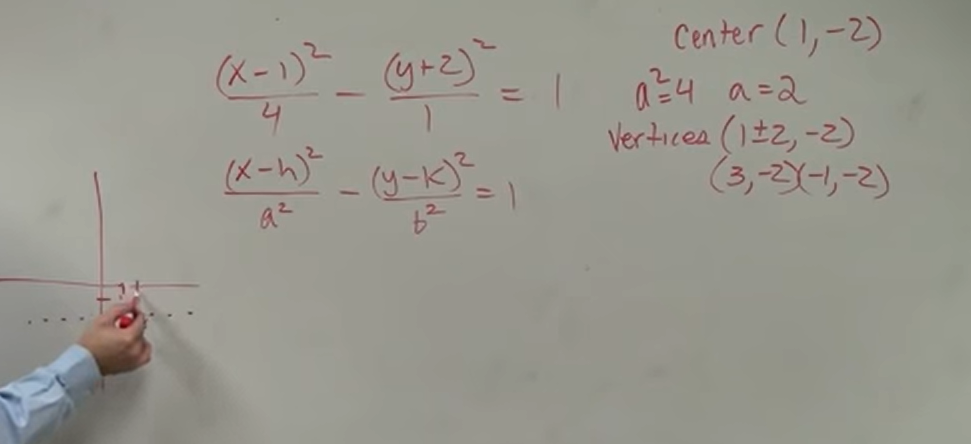 (x-1)²/4 - (y+2)²/1 = 1
(x-h)²/a² - (y-k)²/b² = 1
Center (1,-2)
a²=4 a=2
Vertices (1±2, -2)
(3,-2)(-1,-2)